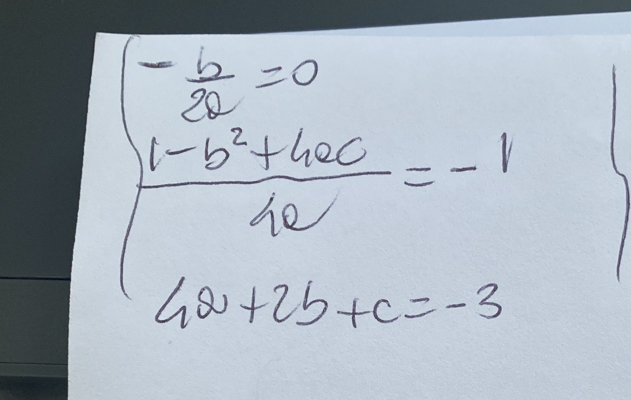 -b/2a = 0
(1-b²+4ac)/4a = -1
4a+2b+c=-3